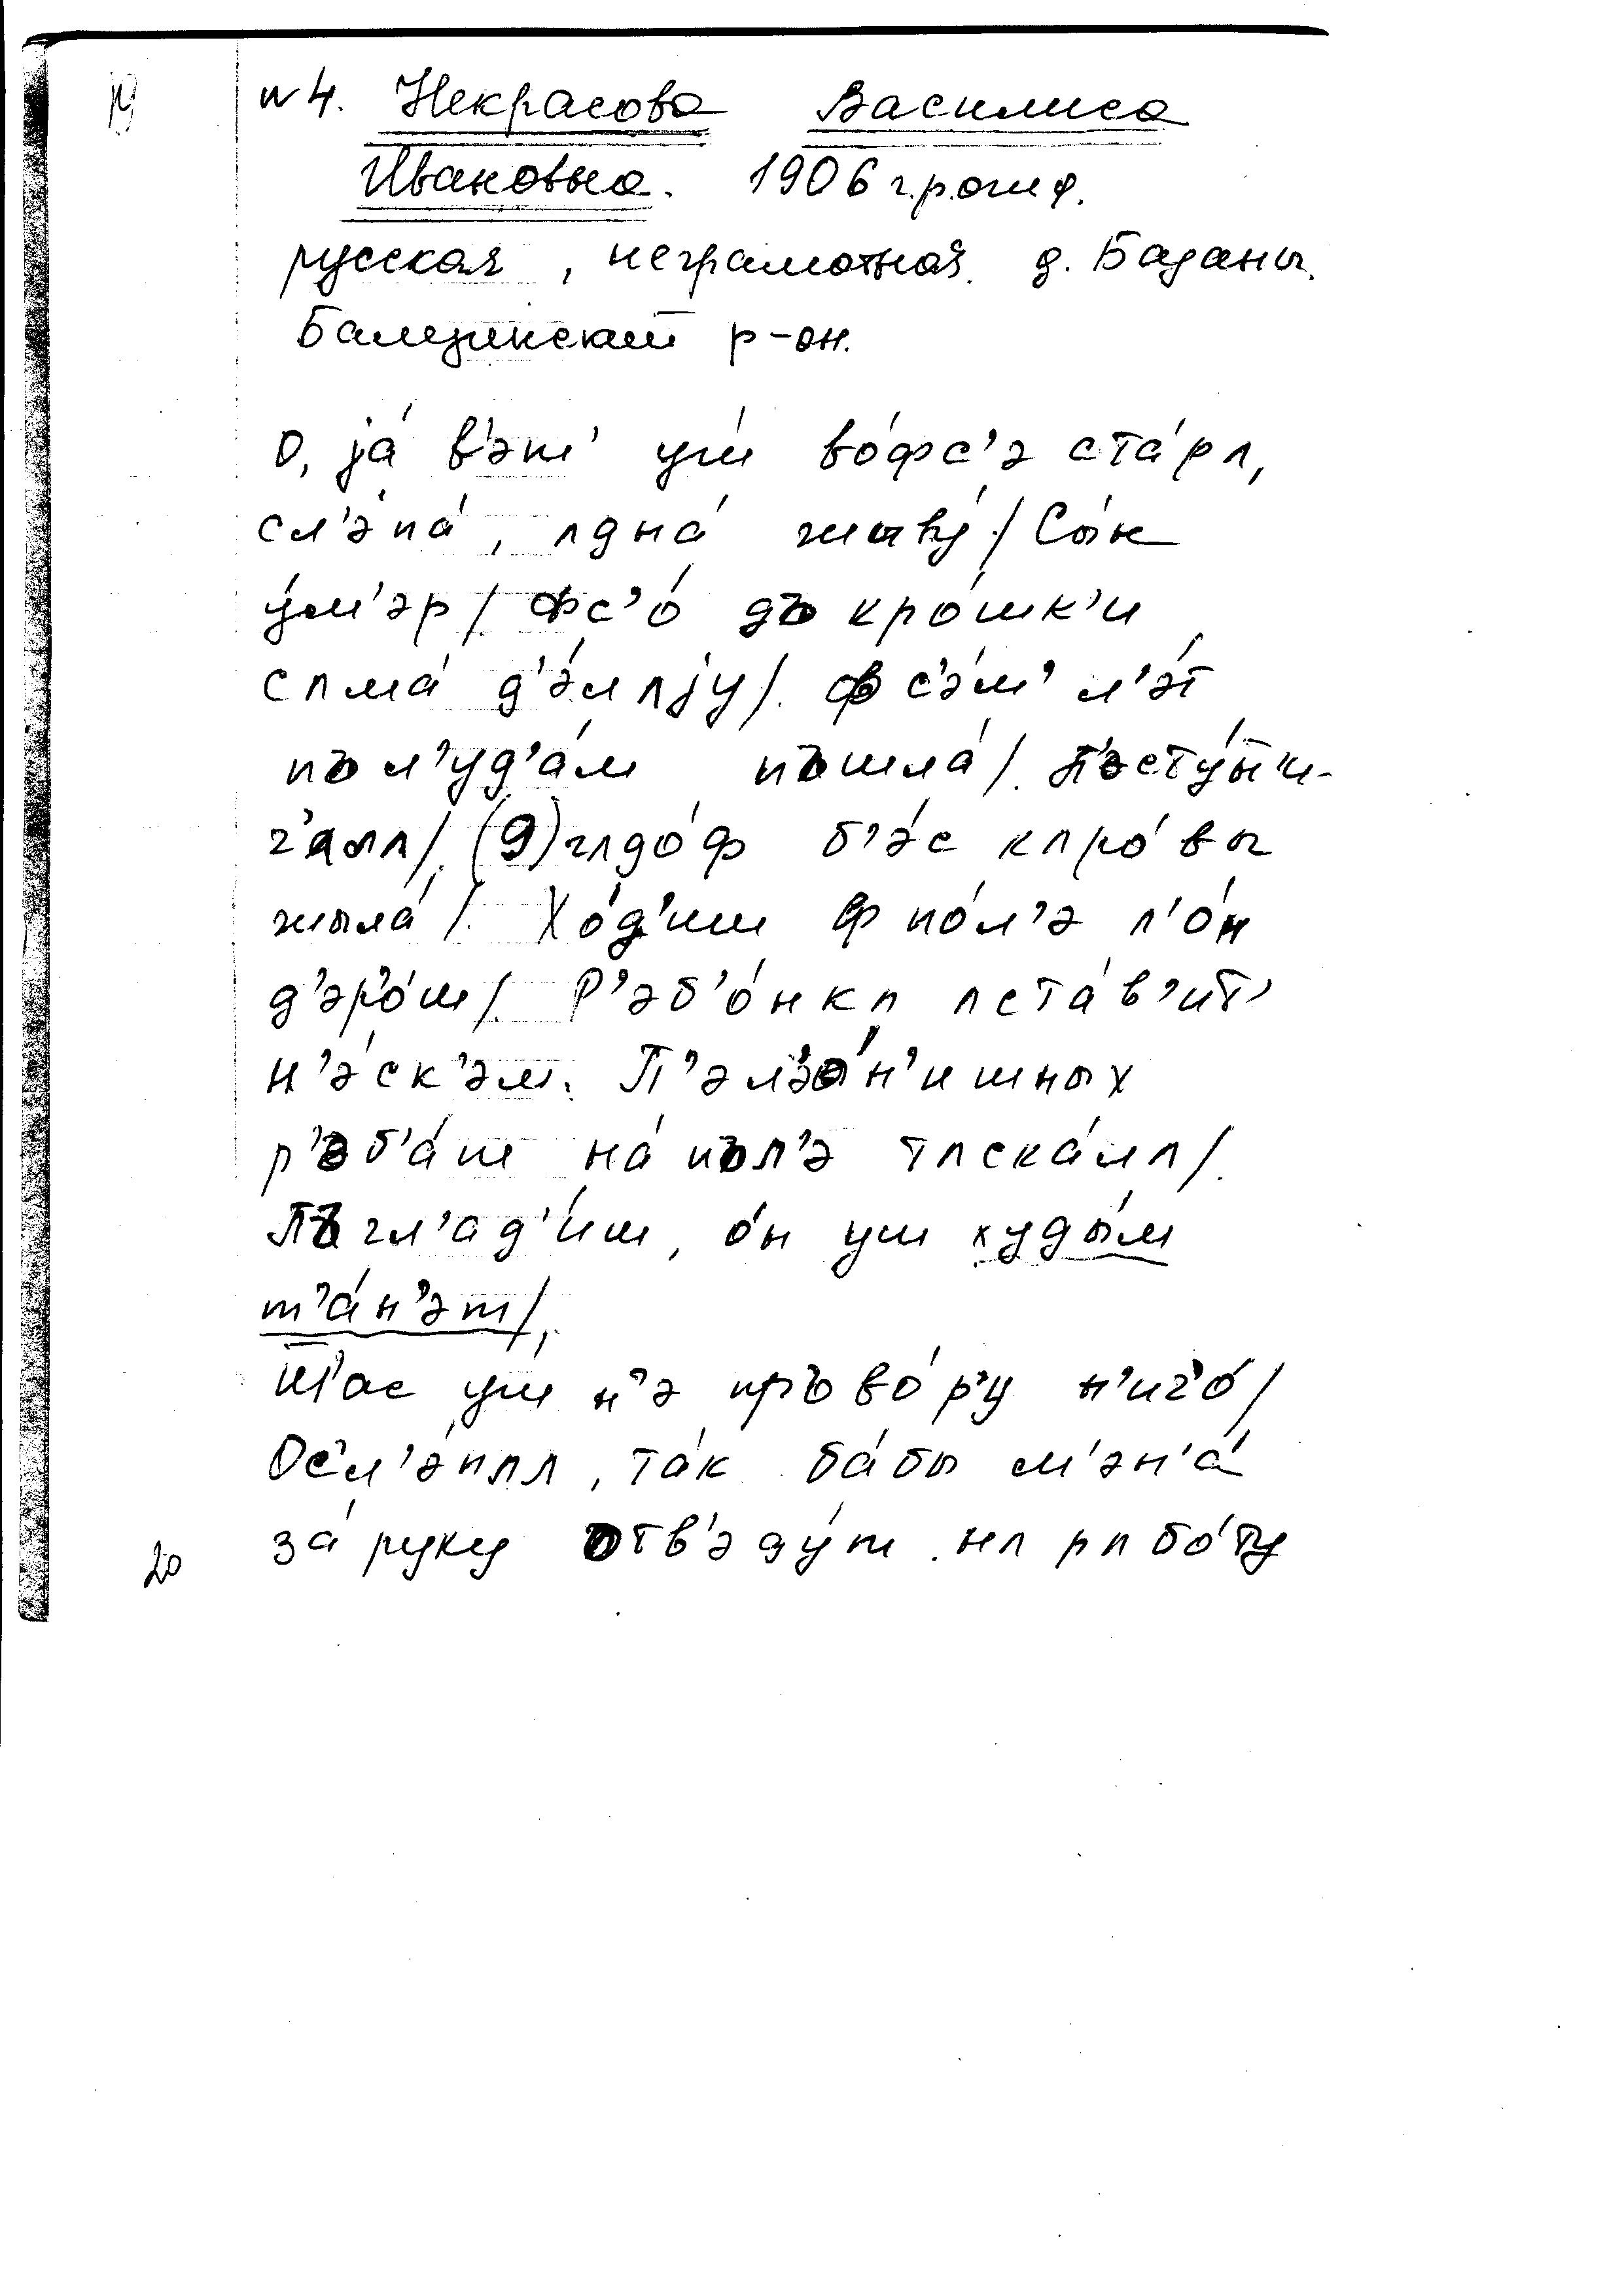 19
№ 4. Некрасова Василиса
Ивановна. 1906 г. рожд.
русская, неграмотная. д. Баданы.
Балезинский р-он.
О, jа́ в'э́т' уш во́фс'э ста́рʌ,
сл'эпа́, ʌдна́ жыву́/ Сы́н
у́м'эр/ Фс'о́ дъ кро́шк'и
сʌма́ д'э́лʌjу/. Ф с'э́м' л'э́т
пъ л'уд'а́м пъшла́/. П'эсту́н'и-
ч'алʌ/. (9) гʌдо́ф б'э́с кʌро́вы
жыла́/. Хо́д'иш ф по́л'э л'о́н
д'эр'о́ш/. Р'эб'о́нкʌ ʌста́в'ит'
н'э́ с к'эм. П'эл'о́н'ишных
р'эб'а́т на́ пъл'э тʌска́лʌ/.
Пъгл'ад'и́ш, о́н уш худы́м
т'а́н'эт/.
Ш'ас уш н'э пръво́р'у н'ич'о́/
Осл'э́плʌ, та́к ба́бы м'эн'а́
за́ руку отв'эду́т нʌ рʌбо́ту
20